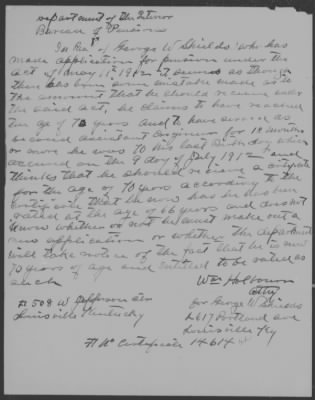 Department of the Interior
Bureau of Pensions
In Re of George W Shields who has
made application for pension under the
act of may 11th 1912 it seems as though
there has been some mistake made as to
the amount that he should receive under
the said act, he claims to have reached
the age of 70 years and to have served as
second assistant Engineer for 18 months
or more he was 70 his last birth day which
occured on the 9 day of July 1912 and
thinks that he should receive a certificate
for the age of 70 years according to the
certificate that he now has he has been
rated at the age of 66 years and does not
know whether or not he must make out a
new application or whether the department
will take notice of the fact that he is now
70 years of age and entitled to be rated as
such
Wm Holbourn
Atty
for George W Shields
# 508 W Jefferson str
Louisville Kentucky
2617 Portland ave
Louisville Ky
Certificate 14614